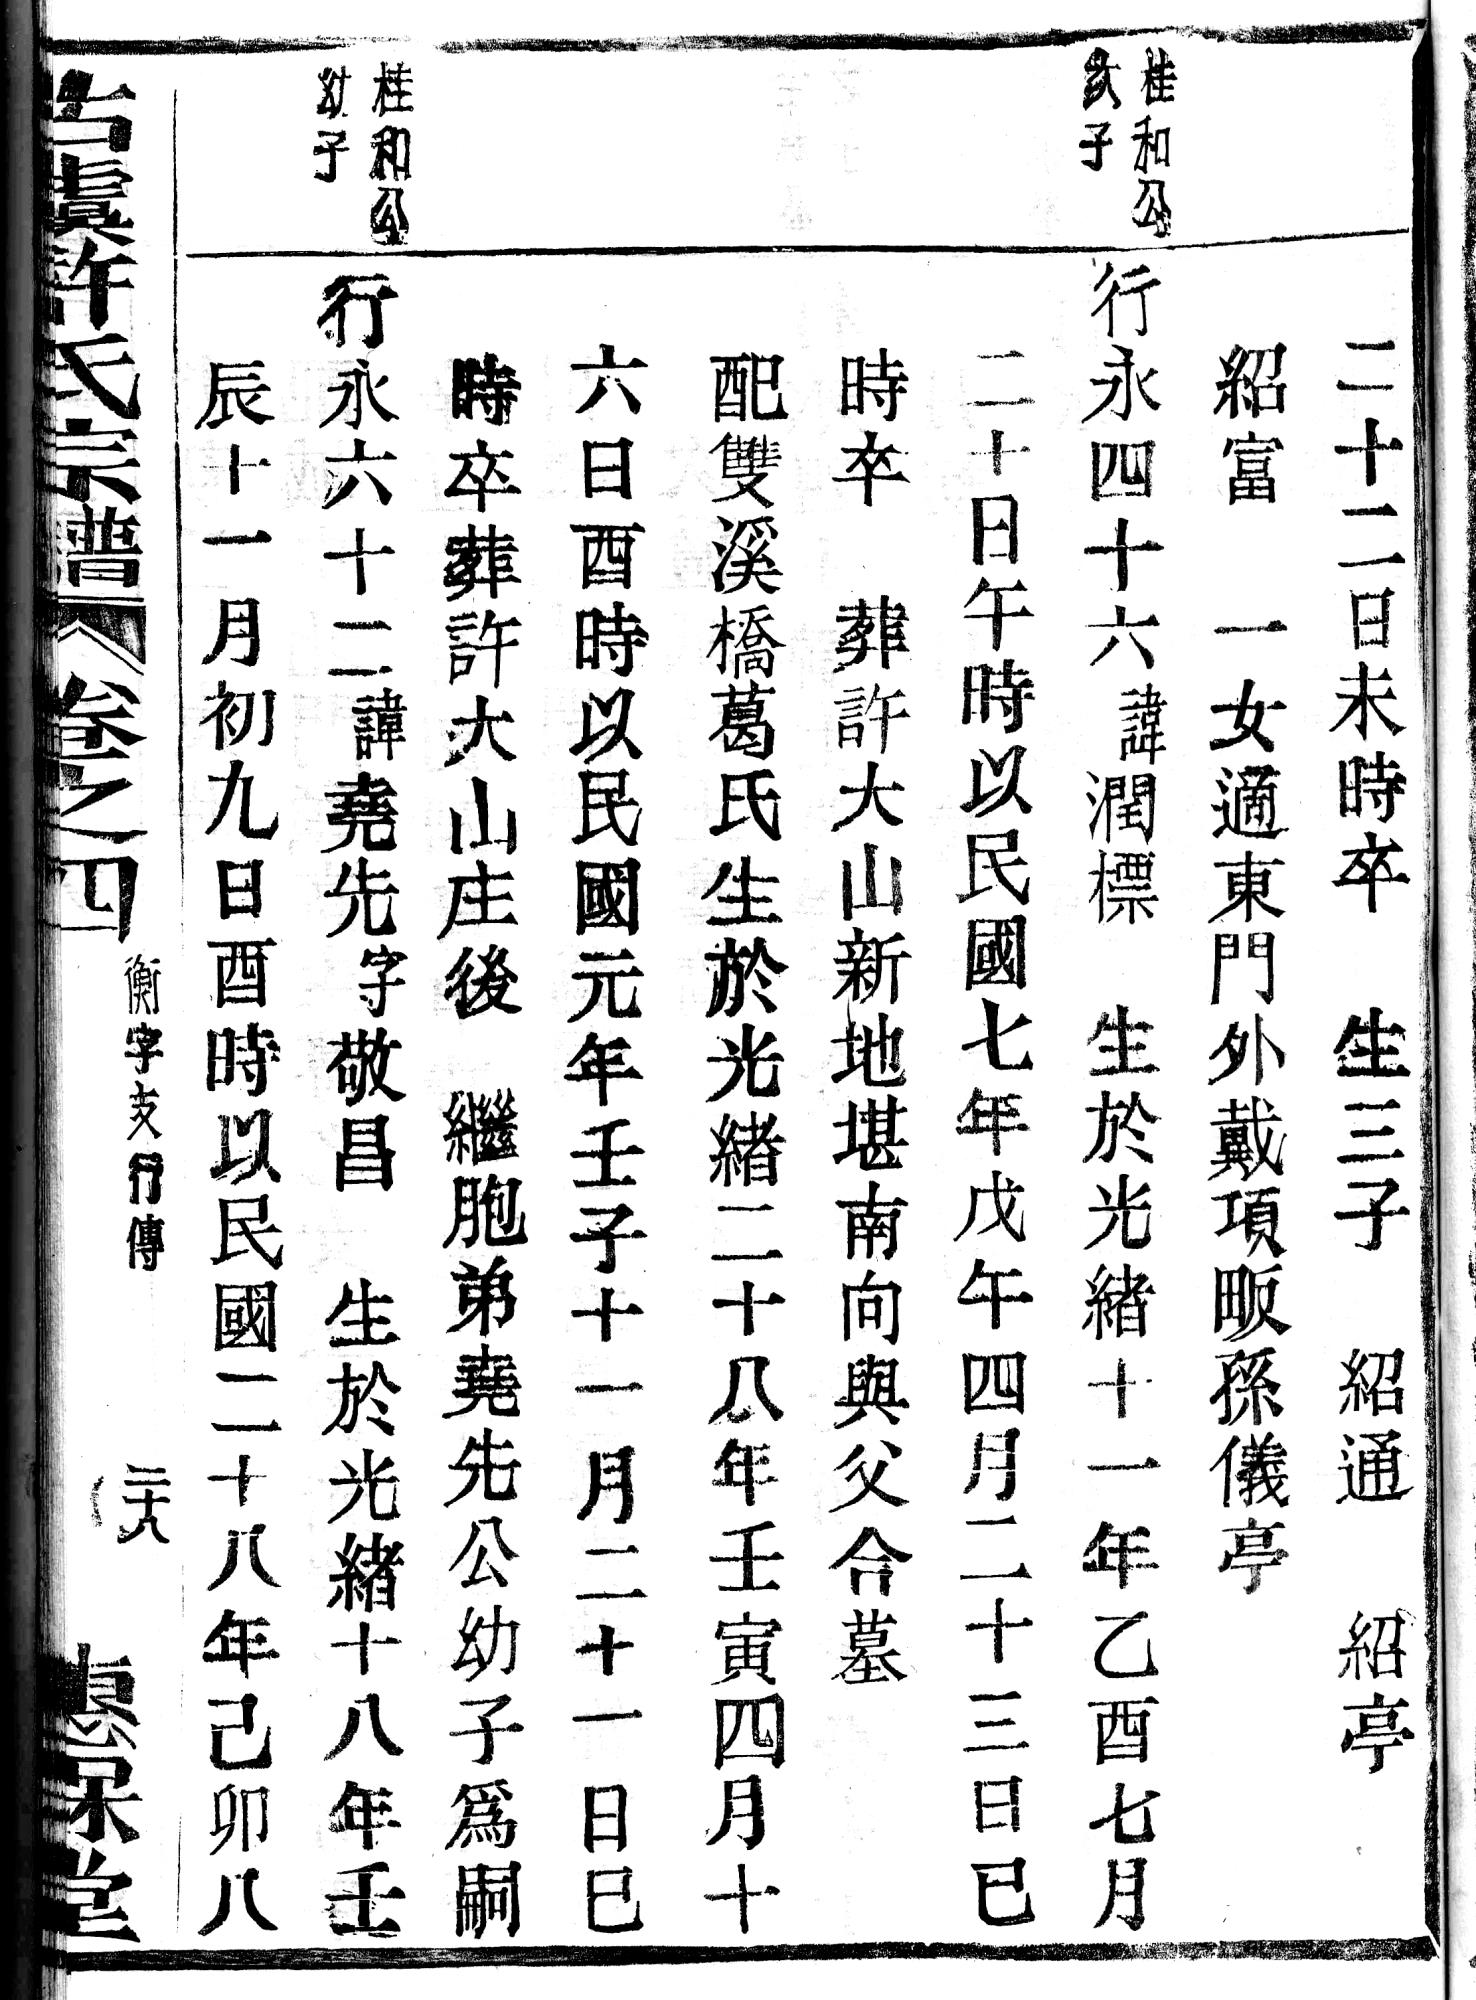 二十二日未時卒 生三子 紹通 紹亭
紹富 一女適東門外戴項畈孫儀亭
桂和公
次子
行永四十六諱潤標 生於光緒十一年乙酉七月
二十日午時以民國七年戊午四月二十三日巳
時卒 葬許大山新地堪南向與父合墓
配雙溪橋葛氏生於光緒二十八年壬寅四月十
六日酉時以民國元年壬子十一月二十一日巳
時卒葬許大山庄後 繼胞弟堯先公幼子爲嗣
桂和公
幼子
行永六十二諱堯先字敬昌 生於光緒十八年壬
辰十一月初九日酉時以民國二十八年己卯八
古虞許氏宗譜 卷之四 衡字支行傳 二十八 惠保堂